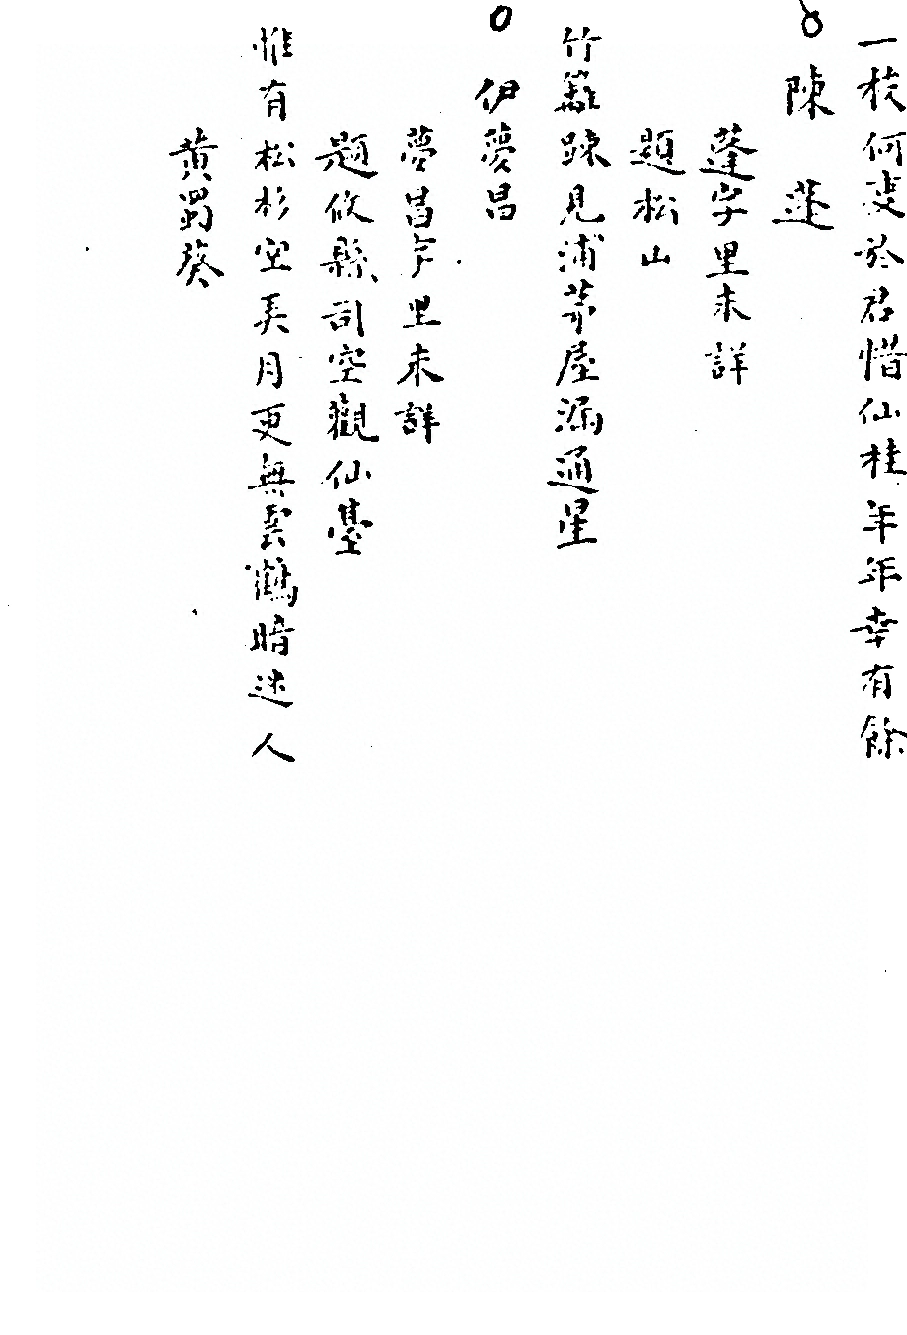 一枝何事於君惜仙桂年年幸有餘
陳蓬
蓬字里未詳
題松山
竹籬疎見浦茅屋漏通星
伊夢昌
夢昌字里未詳
題攸縣司空觀仙臺
惟有松杉空弄月更無雲鶴暗迷人
黃蜀葵